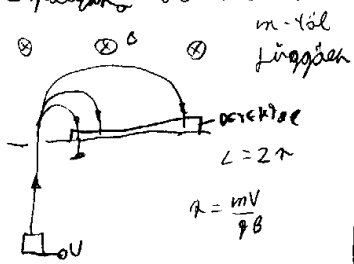 m-től
függően
B
DETEKTOR
L = 2r
r = mv / qB
U